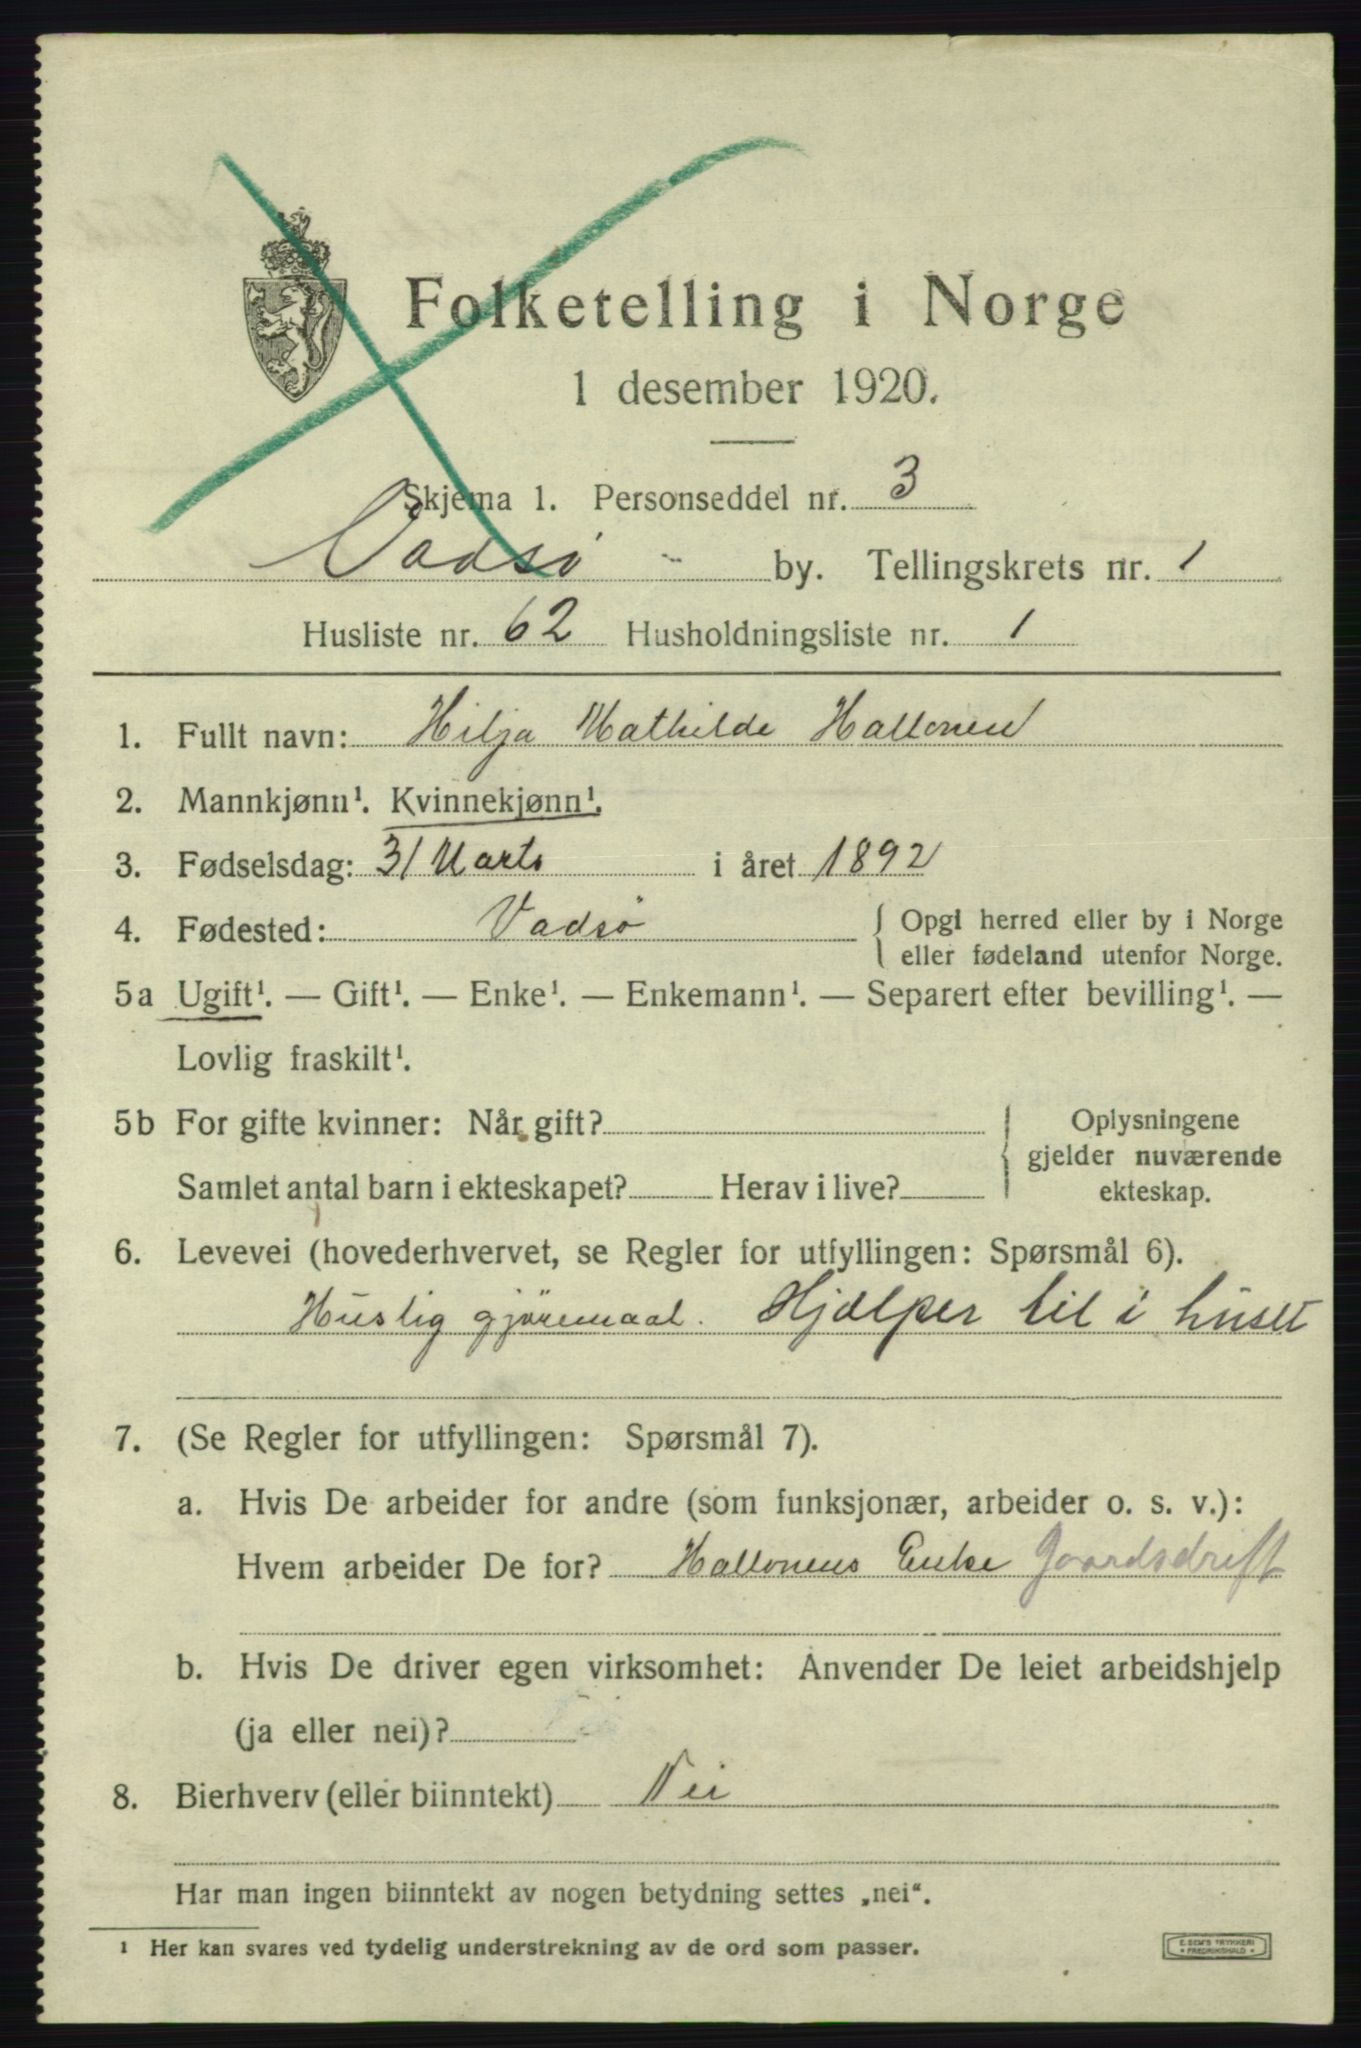 Folketelling i Norge
1 desember 1920.
Skjema 1. Personseddel nr. 3
Vadsø by. Tellingskrets nr. 1
Husliste nr. 62 Husholdningsliste nr. 1
1. Fullt navn: Hilja Mathilde Hallonen
2. Mannkjønn¹. Kvinnekjønn¹.
3. Fødselsdag: 31 Marts i året 1892
4. Fødested: Vadsø { Opgi herred eller by i Norge
eller fødeland utenfor Norge.
5a Ugift¹. — Gift¹. — Enke¹. — Enkemann¹. — Separert efter bevilling¹. —
Lovlig fraskilt¹.
5b For gifte kvinner: Når gift?
Samlet antal barn i ekteskapet? Herav i live?
Oplysningene
gjelder nuværende
ekteskap.
6. Levevei (hovederhvervet, se Regler for utfyllingen: Spørsmål 6).
Huslig gjøremaal. Hjælper til i huset
7. (Se Regler for utfyllingen: Spørsmål 7).
a. Hvis De arbeider for andre (som funksjonær, arbeider o. s. v.):
Hvem arbeider De for? Hallonens Enke Gaardsdrift
b. Hvis De driver egen virksomhet: Anvender De leiet arbeidshjelp
(ja eller nei)?
8. Bierhverv (eller biinntekt) Nei
Har man ingen biinntekt av nogen betydning settes „nei“.
¹ Her kan svares ved tydelig understrekning av de ord som passer.
E. SEM'S TRYKKERI
• FREDRIKSHALD •